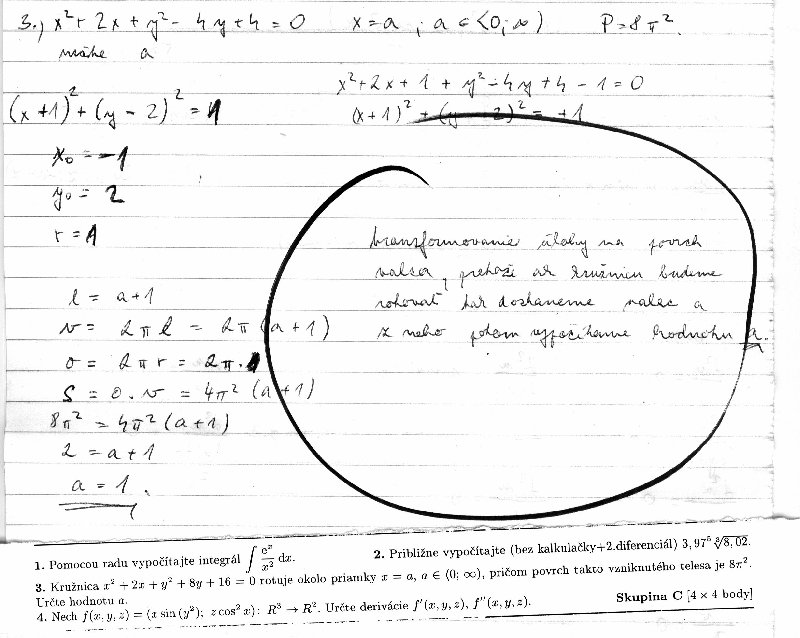 3.) x²+ 2x + y² - 4y + 4 = 0    x = a ; a ∈ <0; ∞)    P = 8π².
máhe a
x²+2x+1 + y²-4y+4-1=0
(x+1)² + (y-2)² = 1    (x+1)² + (y-2)² = +1
x₀ = -1
y₀ = 2
r = 1
transformovanie úlohy na povrch
valca, pretože ak kružnicu budeme
rotovať tak dostaneme valec a
z neho potom vypočítame hodnotu a.
l = a+1
v = 2πl = 2π(a+1)
o = 2πr = 2π.1
S = o.v = 4π²(a+1)
8π² = 4π²(a+1)
2 = a+1
a = 1.
1. Pomocou radu vypočítajte integrál ∫ eˣ/x² dx.    2. Približne vypočítajte (bez kalkulačky+2.diferenciál) 3,97⁵ ∛8,02.
3. Kružnica x² + 2x + y² + 8y + 16 = 0 rotuje okolo priamky x = a, a ∈ (0; ∞), pričom povrch takto vzniknutého telesa je 8π².
Určte hodnotu a.    Skupina C [4 × 4 body]
4. Nech f(x, y, z) = (x sin (y²); z cos² x): R³ → R². Určte derivácie f'(x, y, z), f''(x, y, z).